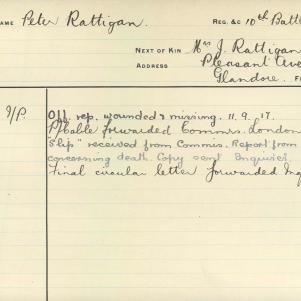 NAME Peter Rattigan. REG. &c 10th Batt
NEXT OF KIN Mrs J. Rattigan
ADDRESS Pleasant Ave
Glandore.
Off. rep. wounded & missing. 11. 9. 17.
forwarded Commrs. London
Slip" received from Commis. Report from
concerning death. Copy sent Inquirer.
Final circular letter forwarded Inq